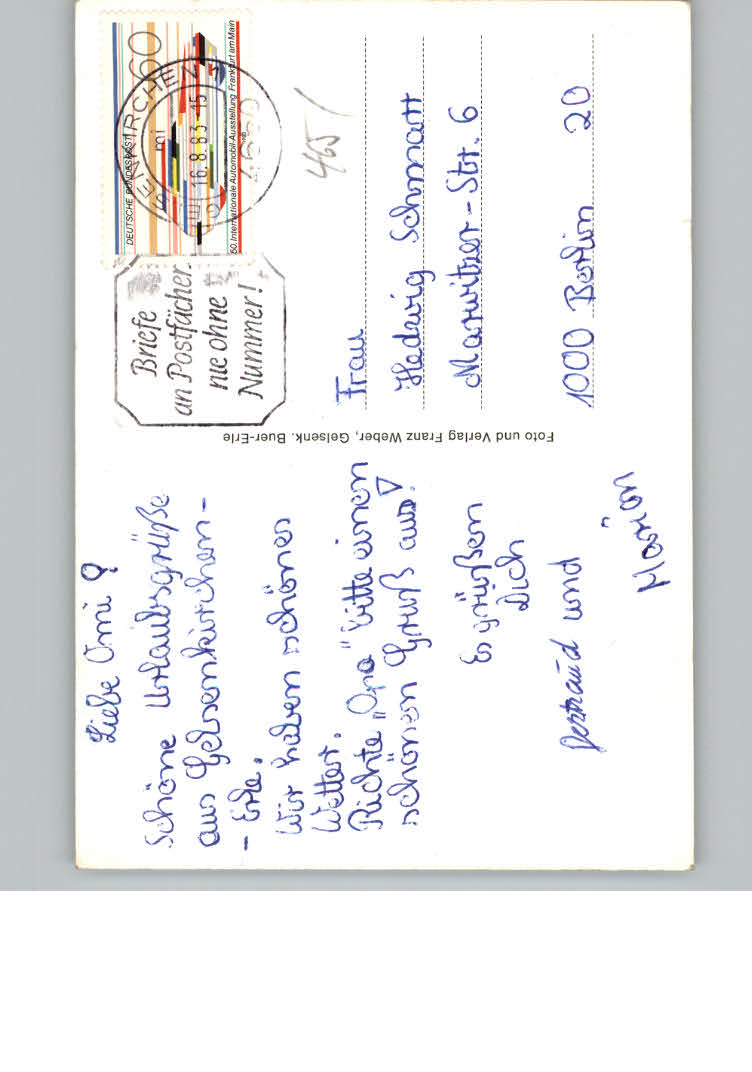 Liebe Omi!
Schöne Urlaubsgrüße
aus Gelsenkirchen-
- Erle.
Wir haben schönes
Wetter.
Richte „Opa" bitte einen
schönen Gruß aus!
Es grüßen
Dich
und
Marion
Foto und Verlag Franz Weber, Gelsenk. Buer-Erle
DEUTSCHE BUNDESPOST
60
50. Internationale Automobil-Ausstellung Frankfurt am Main
16.8.83-15
Briefe
an Postfächer
nie ohne
Nummer!
465/
Frau
Hedwig Schmatt
Marwitzer-Str. 6
1000 Berlin 20